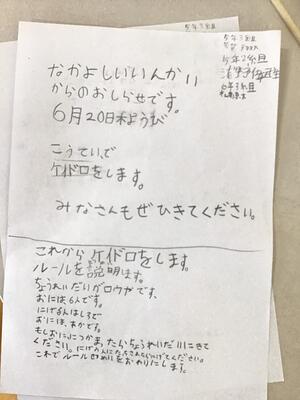 5年3組
5年2組
6年3組
なかよしいいんかい
からのおしらせです。
6月20日木ようび
こうていで
ケイドロをします。
みなさんもぜひきてください。
これからケイドロをします。
ルールを説明します。
ちょうれいだいがロウヤで、
おには、6人です。
にげる人はしろで
おには、あかです。
もしおににつかまったらちょうれいだいにきて
ください。にげる人にたっちされたらにげてください。
これでルールせつめいをおわりにします。